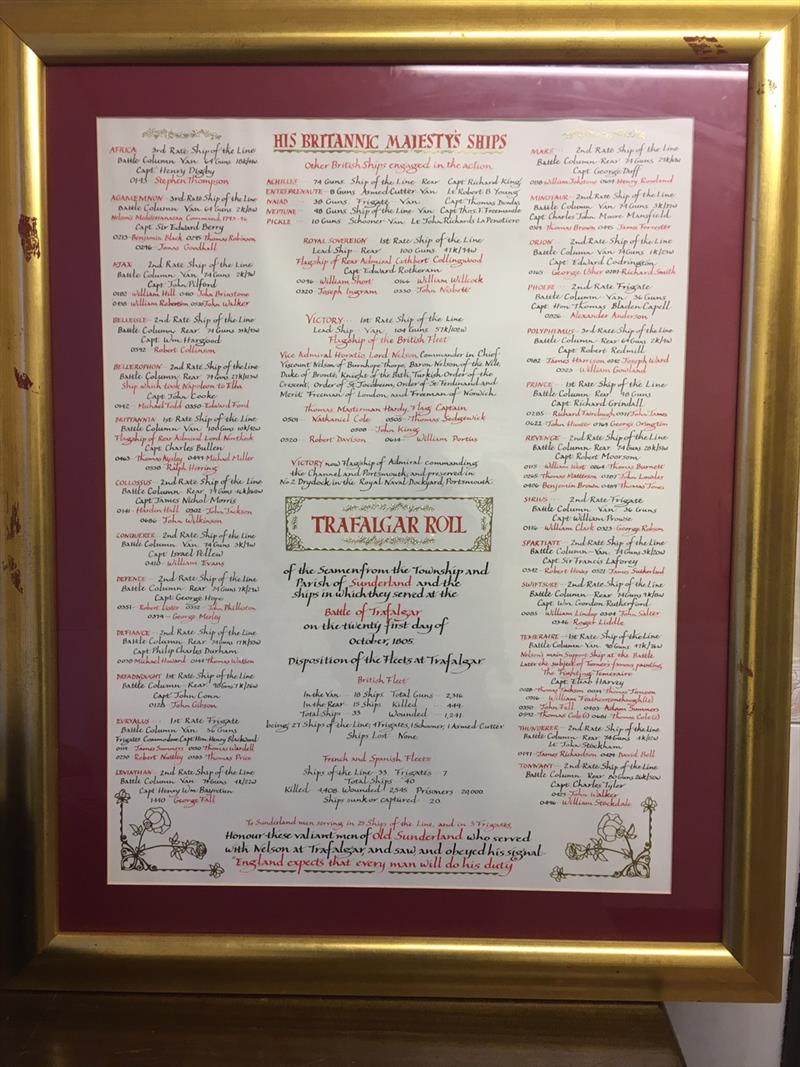 HIS BRITANNIC MAJESTY'S SHIPS
Other British Ships engaged in the action
ACHILLES 74 Guns Ship of the Line Rear Capt Richard King
ENTREPRENAUTE 8 Guns Armed Cutter Van Lt Robert B Young
NAIAD 38 Guns Frigate Van Capt Thomas Dundas
NEPTUNE 98 Guns Ship of the Line Van Capt Thos. F. Freemantle
PICKLE 10 Guns Schooner Van Lt John Richards La Penotiere
AFRICA 3rd Rate Ship of the Line
Battle Column Van 64 Guns 18K/44W
Capt Henry Digby
0143 Stephen Thompson
AGAMEMNON 3rd Rate Ship of the Line
Battle Column Van 64 Guns 2K/8W
Nelson's Mediterranean Command 1793-96
Capt Sir Edward Berry
0213 Benjamin Black 0295 Thomas Robinson
0296 James Goodhall
AJAX 2nd Rate Ship of the Line
Battle Column Van 74 Guns 2K/9W
Capt John Pilford
0182 William Hill John Brinstone
William Robertson John Walker
BELLEISLE 2nd Rate Ship of the Line
Battle Column Rear 74 Guns
Capt Wm. Hargood
0592 Robert Collinson
BELLEROPHON 2nd Rate Ship of the Line
Battle Column Rear 74 Guns 27K/123W
Ship which took Napoleon to Elba
Capt John Cooke
0142 Michael Todd 0350 Edward Ford
BRITTANNIA 1st Rate Ship of the Line
Battle Column Van 100 Guns 10K/42W
Flagship of Rear Admiral Lord Northesk
Capt Charles Bullen
0463 Thomas Apsley 0494 Michael Miller
0508 Ralph Herring
COLLOSSUS 2nd Rate Ship of the Line
Battle Column Rear 74 Guns
Capt James Nichol Morris
0141 Hardin Hall 0302 John Jackson
0686 John Wilkinson
CONQUERER 2nd Rate Ship of the Line
Battle Column Van 74 Guns 3K/9W
Capt Israel Pellew
0410 William Evans
DEFENCE 2nd Rate Ship of the Line
Battle Column Rear 74 Guns 7K/29W
Capt George Hope
0351 Robert Lister 0352 John Phillotson
0379 George Morley
DEFIANCE 2nd Rate Ship of the Line
Battle Column Rear 74 Guns 17K/53W
Capt Philip Charles Durham
0078 Michael Howard 0141 Thomas Watson
DREADNOUGHT 1st Rate Ship of the Line
Battle Column Rear 98 Guns 7K/26W
Capt John Conn
0128 John Gibson
EURYALUS 1st Rate Frigate
Battle Column Van 36 Guns
Frigates Commodore Capt Hon Henry Blackwood
James Summers Thomas Wardell
0270 Robert Nattley 0283 Thomas Price
LEVIATHAN 2nd Rate Ship of the Line
Battle Column Van 74 Guns 4K/22W
Capt Henry Wm. Bayntun
1440 George Fall
ROYAL SOVEREIGN 1st Rate Ship of the Line
Lead Ship Rear 100 Guns 47K/94W
Flagship of Rear Admiral Cuthbert Collingwood
Capt Edward Rotheram
0096 William Short 0164 William Willcock
0320 Joseph Ingram 0330 John Nisbett
VICTORY 1st Rate Ship of the Line
Lead Ship Van 104 Guns 57K/102W
Flagship of the British Fleet
Vice Admiral Horatio Lord Nelson Commander in Chief
Viscount Nelson of Burnhope Thorpe, Baron Nelson of the Nile,
Duke of Bronte, Knight of the Bath, Turkish Order of the
Crescent, Order of St. Joachim, Order of St. Ferdinand and
Merit, Freeman of London, and Freeman of Norwich.
Thomas Masterman Hardy, Flag Captain
0501 Nathaniel Cole 0505 Thomas Sedgewick
0508 John King
0520 Robert Davison 0614 William Portus
VICTORY now Flagship of Admiral commanding
the Channel and Portsmouth, and preserved in
No.2 Drydock in the Royal Naval Dockyard, Portsmouth.
TRAFALGAR ROLL
of the Seamen from the Township and
Parish of Sunderland and the
ships in which they served at the
Battle of Trafalgar
on the twenty first day of
October, 1805.
Disposition of the Fleets at Trafalgar
British Fleet
In the Van 18 Ships Total Guns 2,316
In the Rear 15 Ships Killed 449
Total Ships 33 Wounded 1,241
being 27 Ships of the Line, 4 Frigates, 1 Schooner, 1 Armed Cutter
Ships Lost None
French and Spanish Fleets
Ships of the Line 33 Frigates 7
Total Ships 40
Killed 4,408 Wounded 2,545 Prisoners 20,000
Ships sunk or captured 20
MARS 2nd Rate Ship of the Line
Battle Column Rear 74 Guns 29K/69W
Capt George Duff
0138 William Johnstone Henry Rowland
MINOTAUR 2nd Rate Ship of the Line
Battle Column Van 74 Guns 3K/22W
Capt Charles John Moore Mansfield
Thomas Brown 0445 James Forrester
ORION 2nd Rate Ship of the Line
Battle Column Van 74 Guns 1K/23W
Capt Edward Codrington
0165 George Usher 0287 Richard Smith
PHOEBE 2nd Rate Frigate
Battle Column Van 36 Guns
Capt Hon. Thomas Bladen Capell
0226 Alexander Anderson
POLYPHEMUS 3rd Rate Ship of the Line
Battle Column Rear 64 Guns 2K/4W
Capt Robert Redmill
0182 James Harrison Joseph Ward
0323 William Gowland
PRINCE 1st Rate Ship of the Line
Battle Column Rear 98 Guns
Capt Richard Grindall
0285 Richard Fairclough John James
0621 John Hunter George Orington
REVENGE 2nd Rate Ship of the Line
Battle Column Rear 74 Guns 28K/51W
Capt Robert Moorsom
0115 William West 0264 Thomas Burnett
0265 Thomas Matterson 0287 John Lowdes
0406 Benjamin Brown Thomas Jones
SIRIUS 2nd Rate Frigate
Battle Column Van 36 Guns
Capt William Prowse
0116 William Clark 0323 George Robson
SPARTIATE 2nd Rate Ship of the Line
Battle Column Van 74 Guns 3K/20W
Capt Sir Francis Laforey
0342 Robert Howas 0521 James Sutherland
SWIFTSURE 2nd Rate Ship of the Line
Battle Column Rear 74 Guns 9K/8W
Capt Wm. Gordon Rutherford
0085 William Lindup 0304 John Salter
0346 Roger Liddle
TEMERAIRE 1st Rate Ship of the Line
Battle Column Van 98 Guns 47K/76W
Nelson's main Support Ship at the Battle
Later the subject of Turner's famous painting,
The Fighting Temeraire
Capt Eliab Harvey
Thomas Jackson Thomas Timson
William Featherstonehaugh
0350 John Fell 0403 Adam Summers
0592 Thomas Cole 0681 Thomas Cole
THUNDERER 2nd Rate Ship of the Line
Battle Column Rear 74 Guns 4K/12W
Lt John Stockham
0191 James Richardson 0424 David Bell
TONNANT 2nd Rate Ship of the Line
Battle Column Rear 80 Guns 26K/50W
Capt Charles Tyler
0423 John Walker
0496 William Stockdale
To Sunderland men serving in 25 Ships of the Line, and in 3 Frigates
Honour these valiant men of Old Sunderland who served
with Nelson at Trafalgar, and saw, and obeyed his signal
"England expects that every man will do his duty"